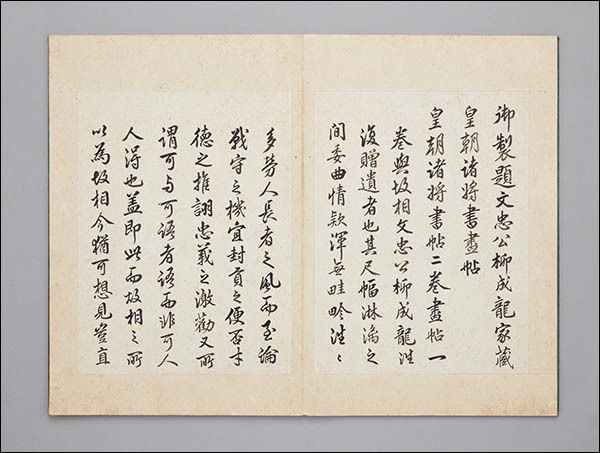 御製題文忠公柳成龍家藏
皇朝諸將書畫帖
皇朝諸將書帖二卷畫帖一
卷與故相文忠公柳成龍往
復贈遺者也其尺幅淋漓之
間委曲情款渾無畦畛往〻
多勞人長者之風而至論
戰守之機宜封貢之便否才
德之推詡忠義之激勸又所
謂可与可語者語而非可人
人得也盖即此而故相之所
以為故相今猶可想見豈直